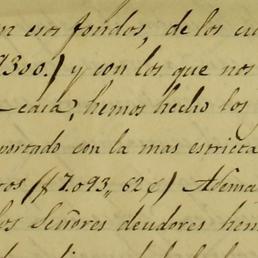 en esos fondos, de los cu
9300.) y con los que nos
caja, hemos hecho los
portado con la mas estricta
os ($7.093,,62¢) Adema
los Señores deudores hem